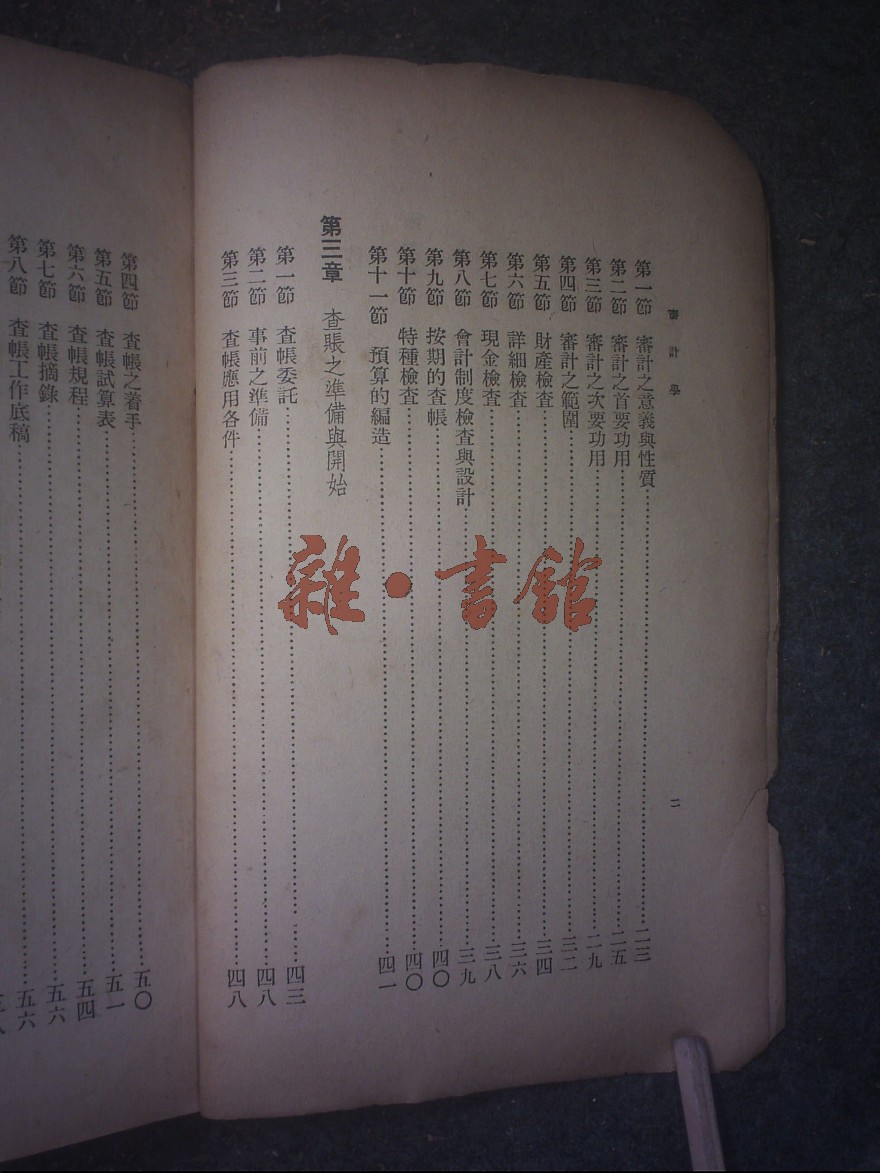 審計學
二
第一節 審計之意義與性質……二三
第二節 審計之首要功用……二五
第三節 審計之次要功用……二九
第四節 審計之範圍……三二
第五節 財產檢查……三四
第六節 詳細檢查……三六
第七節 現金檢查……三八
第八節 會計制度檢查與設計……三九
第九節 按期的查帳……四〇
第十節 特種檢查……四〇
第十一節 預算的編造……四一
第三章 查賬之準備與開始
第一節 查帳委託……四三
第二節 事前之準備……四八
第三節 查帳應用各件……四八
第四節 查帳之着手……五〇
第五節 查帳試算表……五一
第六節 查帳規程……五四
第七節 查帳摘錄……五六
第八節 查帳工作底稿……五六
雜·書館